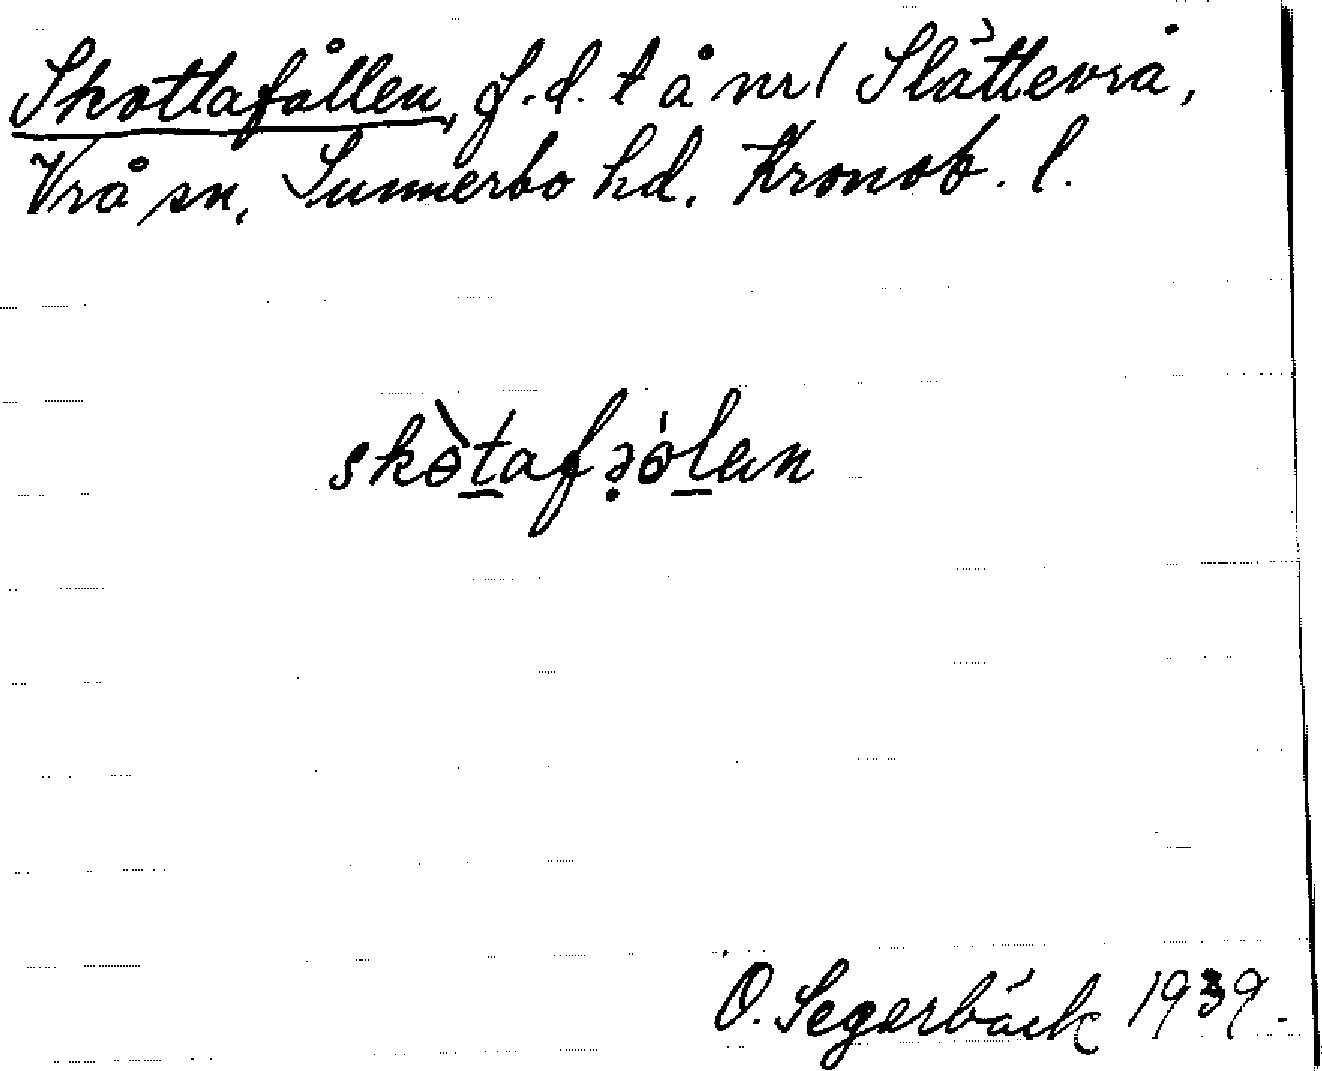 Skottafållen, f.d. t å nr 1 Slättevrå,
Vrå sn, Sunnerbo hd. Kronob. l.
skɵ̀t̲afə̣ɵ́l̲an
O. Segerbäck 1939.